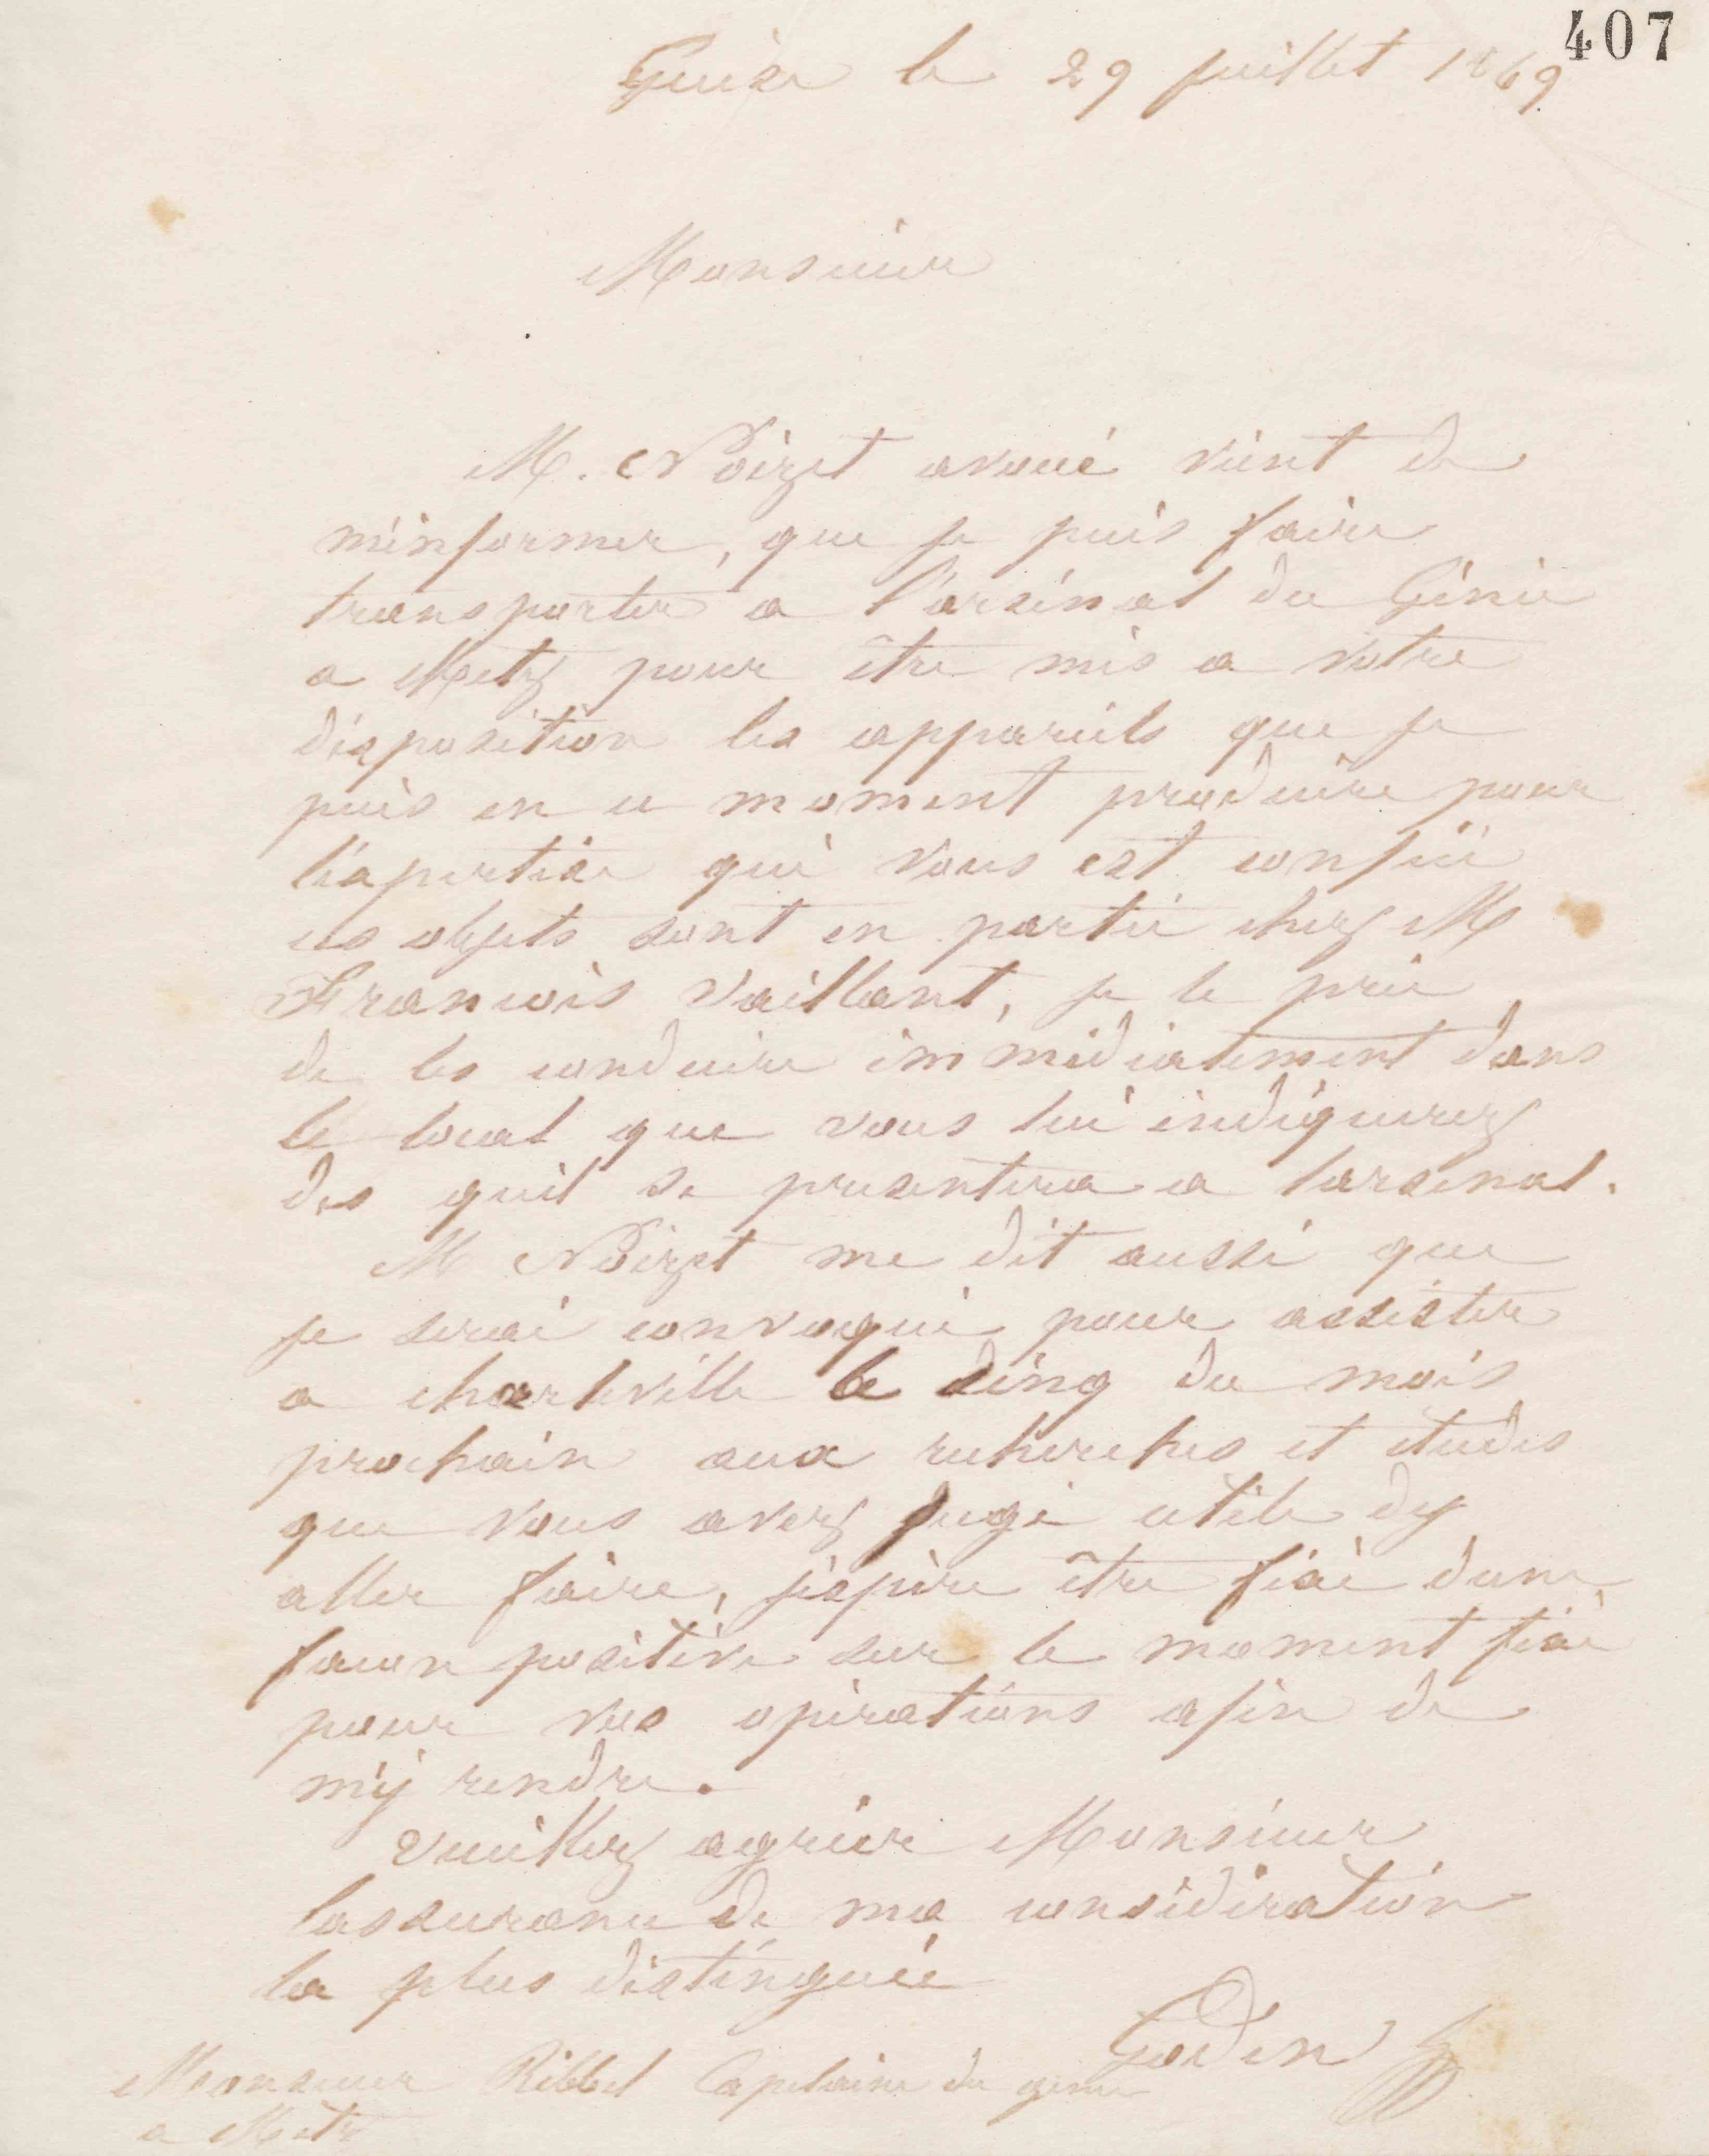 407
Guise le 29 juillet 1869
Monsieur
M. Noizet avoué vient de
m'informer, que je puis faire
transporter a l'arsénal du Génie
a Metz pour être mis a votre
disposition les appareils que je
puis en ce moment produire pour
l'éxpertise qui vous est confiée
ces objets sont en partie chez M
Francois Vaillant, je le prie
de les conduire immédiatement dans
le local que vous lui indiquerez
des quil se presentera a larsenal.
M Noizet me dit aussi que
je serai convoqué pour assister
a charleville le cinq du mois
prochain aux recherches et études
que vous avez jugé utile dy
aller faire, j'éspère être fixé dune
facon positive sur le moment fixé
pour vos opérations afin de
m'y rendre.
Veuillez agréer Monsieur
lassurance de ma considération
la plus distinguée
Godin
Monsieur Ribbel Capitaine du génie
a Metz